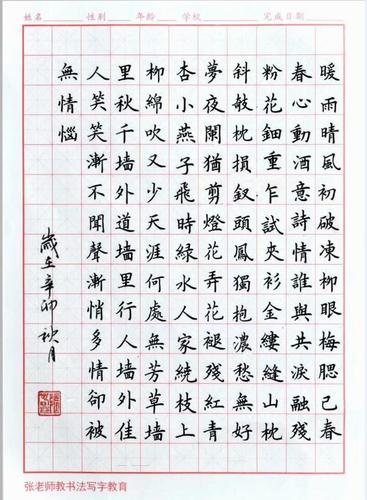 姓名 性别 年龄 学校 完成日期
暖雨晴風初破凍柳眼梅腮已春
春心動酒意詩情誰與共淚融殘
粉花鈿重乍試夾衫金縷縫山枕
斜敧枕損釵頭鳳獨抱濃愁無好
夢夜闌猶剪燈花弄花褪殘紅青
杏小燕子飛時綠水人家繞枝上
柳綿吹又少天涯何處無芳草墙
里秋千墙外道墙里行人墙外佳
人笑笑漸不聞聲漸悄多情卻被
無情惱
歲在辛卯秋月
张老师教书法写字教育